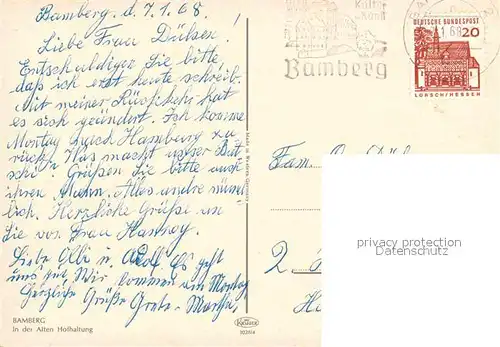 Bamberg, d. 7.1.68.
Liebe Frau Dülsen.
Entschuldigen Sie bitte,
daß ich erst heute schreib.
Mit meiner Rückkehr hat
es sich geändert. Ich komme
Montag nach Hamburg zu
rück. Was macht unser
Grüßen Sie bitte auch
ihren Mann. Alles andre münd
lich. Herzliche Grüße an
Sie von Frau Hannoy.
Liebe Olli u. Adolf. Es geht
uns gut. Wir kommen am Montag
Herzliche Grüße Grete - Martha
BAMBERG
In der Alten Hofhaltung
Kultur
Kunst
Bamberg
DEUTSCHE BUNDESPOST
20
LORSCH/HESSEN
Fam.
2
privacy protection
Datenschutz
Krüger